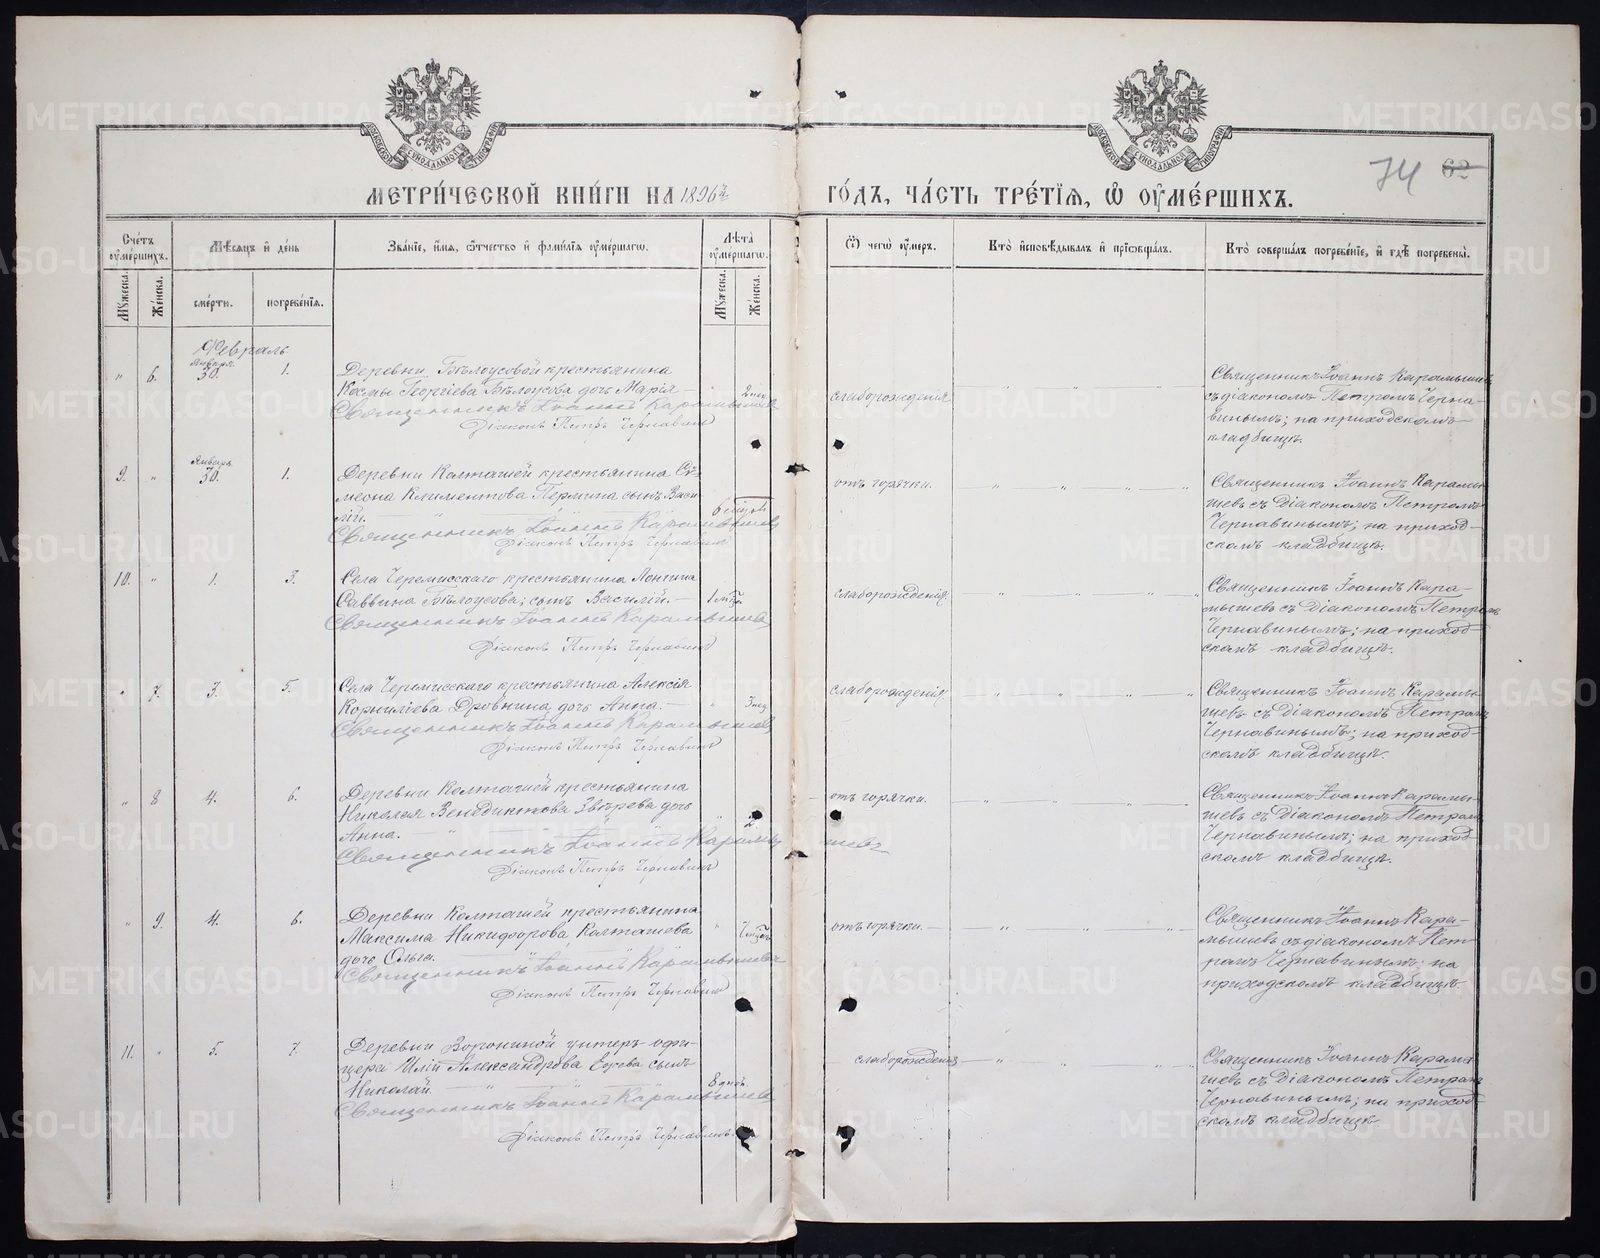 МЕТРИ́ЧЕСКОЙ КНИ́ГИ НА 1896 й
ГО́ДЪ, ЧА́СТЬ ТРЕ́ТЇѦ, Ѡ҆ ОУ҆МЕ́РШИХЪ.
74 62
Сче́тъ оу҆ме́ршихъ.
Мѣ́сѧцъ и҆ де́нь
Зва́нїе, и҆́мѧ, ѻ҆́тчество и҆ фами́лїѧ оу҆ме́ршагѡ.
Лѣ́та оу҆ме́ршагѡ.
Ѿ чегѡ̀ оу҆́меръ.
Кто̀ и҆сповѣ́дывалъ и҆ прїѡбща́лъ.
Кто̀ соверша́лъ погребе́нїе, и҆ гдѣ̀ погребены̀.
Мꙋ́жеска.
Же́нска.
сме́рти.
погребе́нїѧ.
Мꙋ́жеска.
Же́нска.
Февраль
" 6. Января 30. 1. Деревни Бѣлоусовой крестьянина
Космы Георгіева Бѣлоусова дочь Марія — " 2 нед.
Священникъ Іоаннъ Карамышевъ
Діаконъ Петръ Чернавинъ
слаборожденія
Священникъ Іоаннъ Карамышевъ
съ діакономъ Петромъ Черна-
винымъ; на приходскомъ
кладбищѣ.
9. " Январь 30. 1. Деревни Колташей крестьянина Си-
меона Климентова Пермина сынъ Васи-
лій.
Священникъ Іоаннъ Карамышевъ
Діаконъ Петръ Чернавинъ
отъ горячки.
Священникъ Іоаннъ Карамы-
шевъ съ Діакономъ Петромъ
Чернавинымъ; на приход-
скомъ кладбищѣ.
10. " 1. 3. Села Черемисскаго крестьянина Лонгина
Саввина Бѣлоусова; сынъ Василій. — 1 мѣс.
Священникъ Іоаннъ Карамышевъ
Діаконъ Петръ Чернавинъ
слаборожденія
Священникъ Іоаннъ Кара-
мышевъ съ Діакономъ Петромъ
Чернавинымъ; на приход-
скомъ кладбищѣ.
" 7. 3. 5. Села Черемисскаго крестьянина Алексія
Корниліева Дровнина дочь Анна. — " 3 нед.
Священникъ Іоаннъ Карамышевъ
Діаконъ Петръ Чернавинъ
слаборожденія
Священникъ Іоаннъ Карамы-
шевъ съ Діакономъ Петромъ
Чернавинымъ; на приход-
скомъ кладбищѣ.
" 8 4. 6. Деревни Колташей крестьянина
Николая Венедиктова Звѣрева дочь
Анна. " 2
Священникъ Іоаннъ Карамышевъ
Діаконъ Петръ Чернавинъ
отъ горячки.
Священникъ Іоаннъ Карамы-
шевъ съ Діакономъ Петромъ
Чернавинымъ; на приход-
скомъ кладбищѣ.
" 9. 4. 6. Деревни Колташей крестьянина
Максима Никифорова Колташева
дочь Ольга.
Священникъ Іоаннъ Карамышевъ
Діаконъ Петръ Чернавинъ
отъ горячки. —
Священникъ Іоаннъ Кара-
мышевъ съ діакономъ Пет-
ромъ Чернавинымъ; на
приходскомъ кладбищѣ.
11. " 5. 7. Деревни Ворониной унтеръ офи-
цера Иліи Александрова Ежева сынъ
Николай. 8 дней.
Священникъ Іоаннъ Карамышевъ
Діаконъ Петръ Чернавинъ.
слаборожденія
Священникъ Іоаннъ Карамы-
шевъ съ Діакономъ Петромъ
Чернавинымъ; на приход-
скомъ кладбищѣ.
METRIKI.GASO-URAL.RU